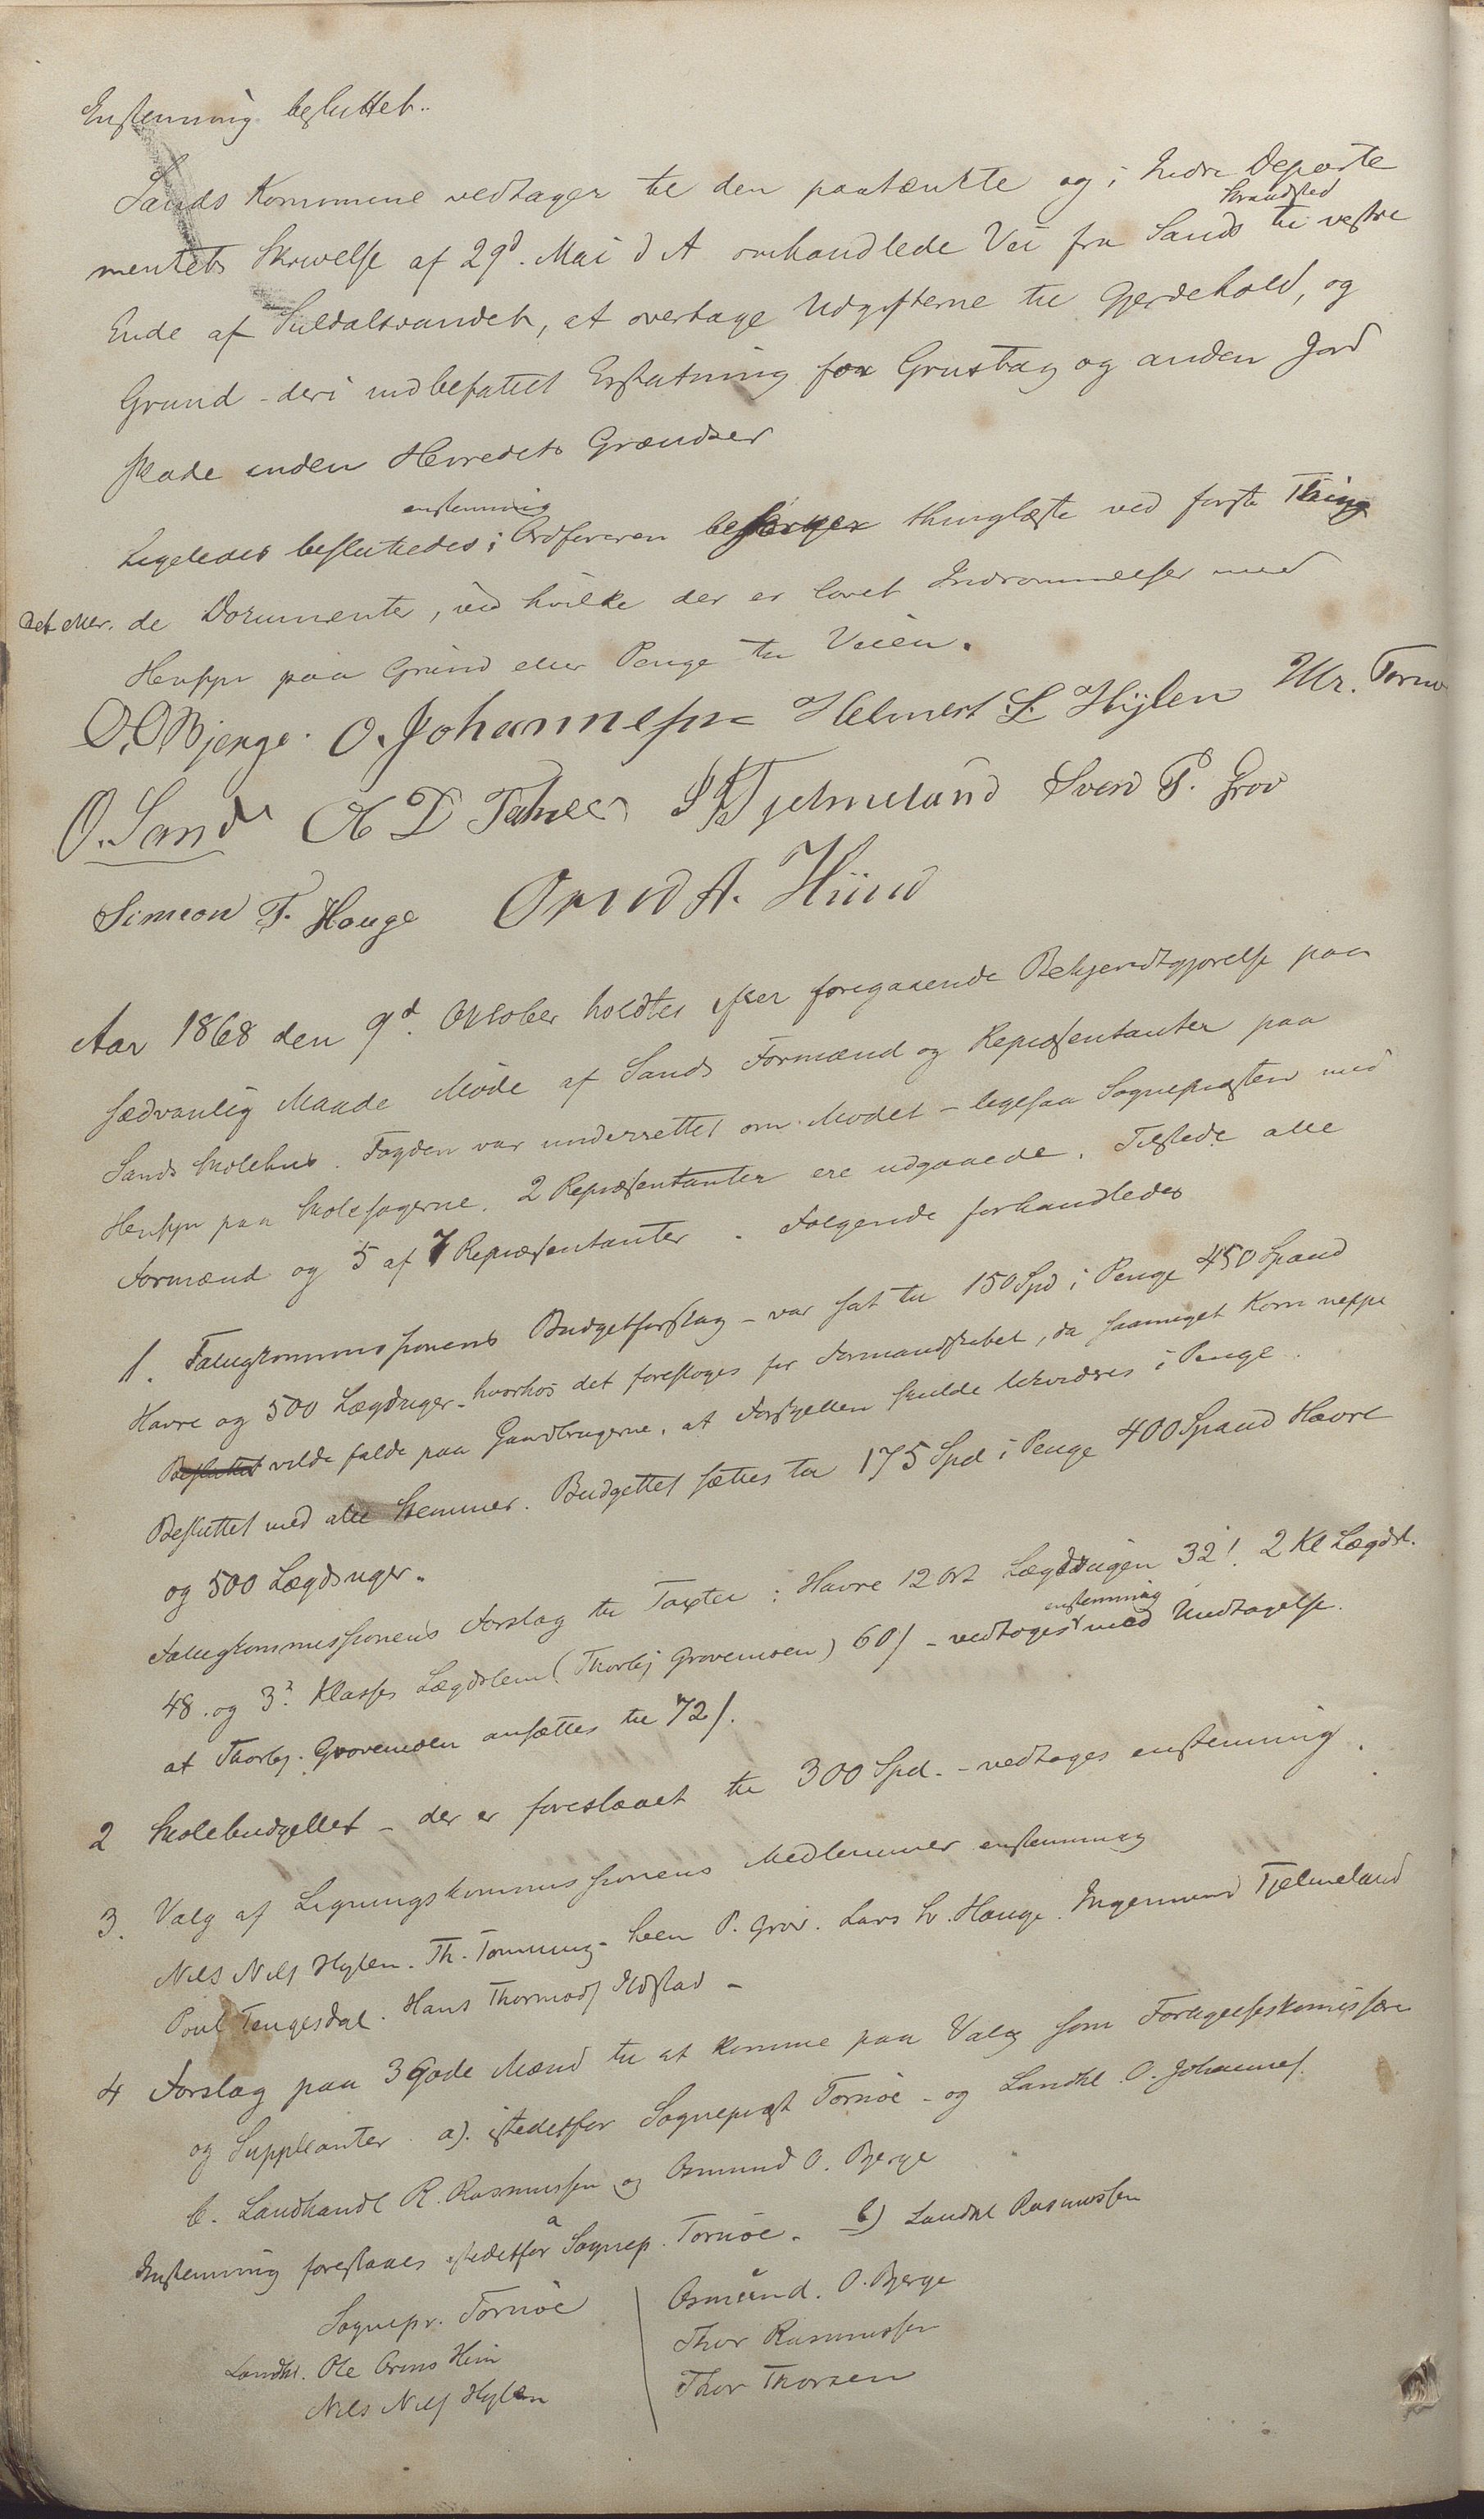 Enstemmig besluttet..
Sands Kommune vedtager til den paatænkte og i Indre Departe
mentets Skrivelse af 29d. Mai d A omhandlede Vei fra Sands Strandsted til vestre
Ende af Suldalsvandet, at overtage Udgifterne til Gjerdehold, og
Grund - deri indbefattet Erstatning for Grustag og anden Jord
skade inden Herredets Grændser
Ligeledes besluttedes enstemmig; Ordføreren besørger thinglæste ved første Thing
de Dokumenter, ved hvilke der er lovet Indrømmelser med
Hensyn paa Grund eller Penge til Veien.
O.O Bjerge. O. Johannessen Helmert L. Hylen Mr. Tornø
O. Sand S Tjelmeland Svend P. Grov
Simeon T. Houge Ormd A. Hiim
Aar 1868 den 9d. Oktober holdtes efter foregaaende Bekjendtgjørelse paa
sædvanlig Maade Møde af Sands Formænd og Repræsentanter paa
Sands Skolehus. Fogden var underrettet om Mødet - ligesaa Sognepræsten med
Hensyn paa Skolesagerne. 2 Repræsentanter ere udgaaede. Tilstede alle
Formænd og 5 af 7 Repræsentanter. Følgende forhandledes
1. Fattigkommissionens Budgetforslag - var sat til 150 Spd i Penge 450 Spand
Havre og 500 Lægdsuger - hvorhos det foresloges for Formandskabet, da saameget Korn neppe
Besluttet vilde falde paa Gaardbrugerne, at Forskjellen skulde likvideres i Penge.
Besluttet med alle Stemmer. Budgettet sættes til 175 Spd i Penge 400 Spand Havre
og 500 Lægdsuger.
Fattigkommissionens Forslag til Taxter: Havre 12 ort Lægdsugen 32!. 2 Kl Lægdsl.
48. og 3? Klasses Lægdslem (Thorbj Grovemoen) 60/ - vedtoges enstemmig med Undtagelse.
at Thorbj. Grovemoen ansættes til 72/.
2 Skolebudgettet - der er foreslaaet til 300 Spd. - vedtoges enstemmig.
3. Valg af Ligningskommissionens Medlemmer enstemmig
Nils Nils Hylen. Th. Tømming. Sven P. Grov. Lars L. Hauge. Ingemund Tjelmeland
Poul Tengesdal. Hans Thormods Ilstad -
4 Forslag paa 3 Gode Mænd til at komme paa Valg som Forligelseskomissære
og Suppleanter. a). istedetfor Sogneprest Tornøe - og Landhl. O. Johannes.
b. Landhandl R. Rasmussen og Osmund O. Bjerge
Enstemmig foreslaaes istedetfor a Sognep. Tornøe. b) Landhl Rasmussen
Sognepr. Tornøe Osmund. O. Bjerge
Landhl. Ole Orms Hiim Thor Rasmussen
Nils Nils Hylen Thor Thorsen